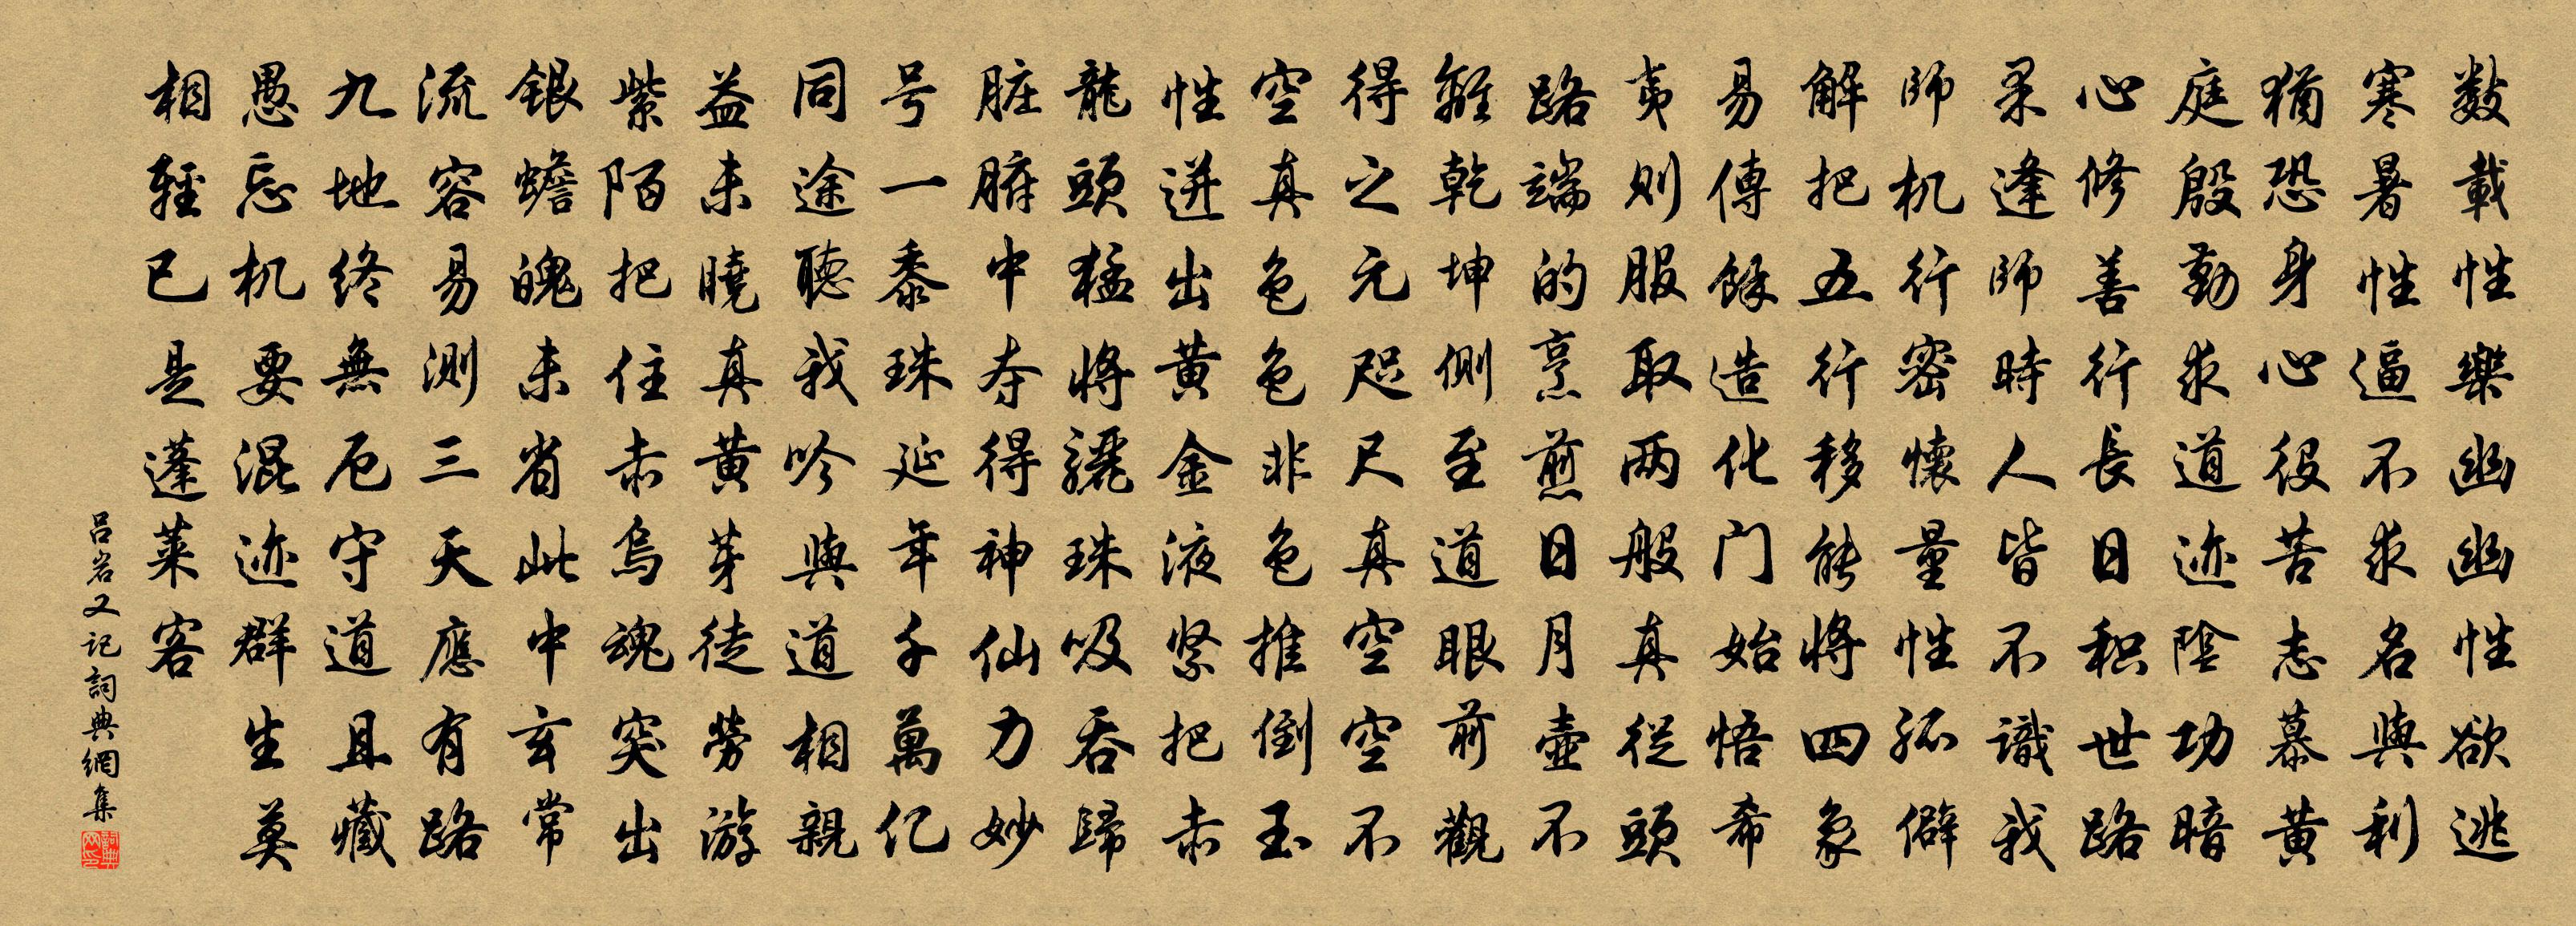 数載性樂幽幽性欲逃
寒暑性逼不求名與利
猶恐身心役苦志慕黄
庭殷勤求道迹陰功暗
心修善行長日积世路
果逢師時人皆不識我
師机行密懷量性孤僻
解把五行移能將四象
易傳餘造化门始悟希
夷則服取两般真從頭
路端的烹煎日月壶不
難乾坤側至道眼前觀
得之元咫尺真空空不
空真色色非色推倒玉
性迸出黄金液紧把赤
龍頭猛將驪珠吸吞歸
脏腑中夺得神仙力妙
号一黍珠延年千萬亿
同途聽我吟與道相親
益未曉真黄芽徒勞游
紫陌把住赤烏魂突出
銀蟾魄未省此中玄常
流容易測三天應有路
九地終無厄守道且藏
愚忘机要混迹群生莫
相輕已是蓬莱客
吕岩又记詞典網集